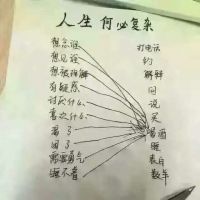 人生何必复杂
想念谁
想见谁
想被理解
有疑惑
讨厌什么
喜欢什么
渴了
困了
需要勇气
睡不着
打电话
约
解释
问
说
买
喝酒
睡
表白
数羊